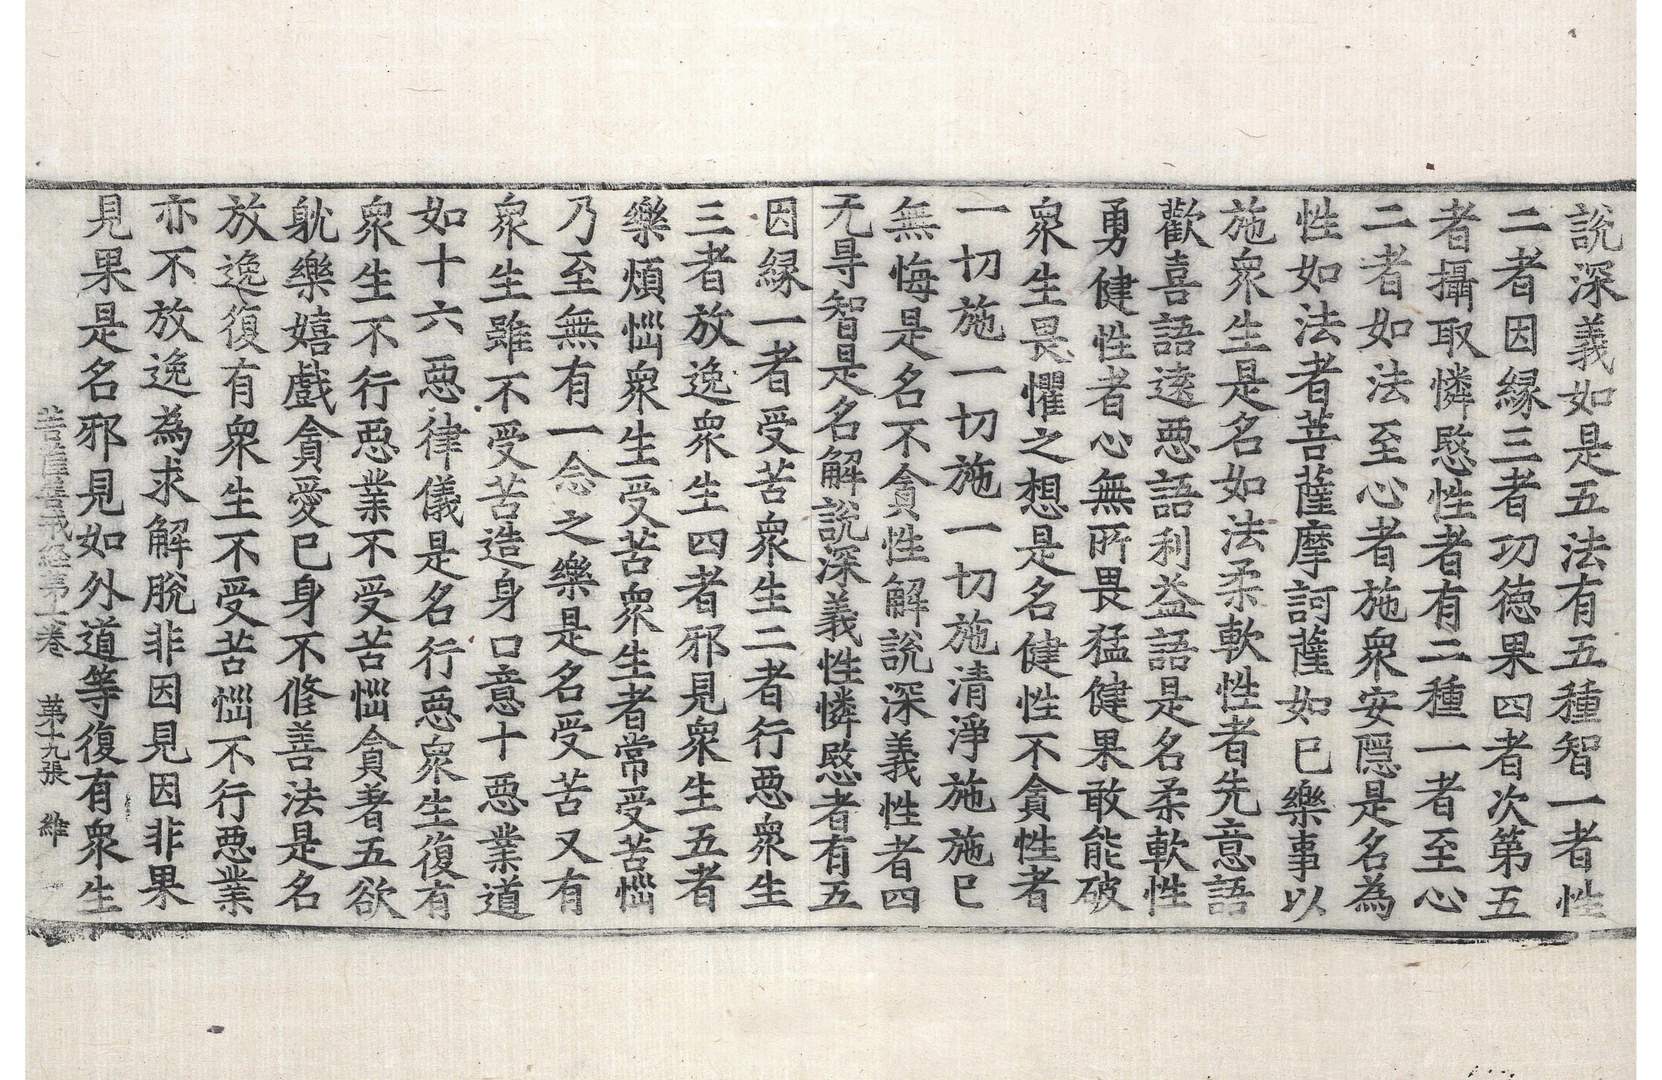 說深義如是五法有五種智一者性
二者因縁三者功徳果四者次第五
者攝取憐愍性者有二種一者至心
二者如法至心者施衆安隠是名為
性如法者菩薩摩訶薩如已樂事以
施衆生是名如法柔軟性者先意語
歡喜語逺惡語利益語是名柔軟性
勇健性者心無所畏猛健果敢能破
衆生畏懼之想是名健性不貪性者
一切施一切施一切施清淨施施已
無悔是名不貪性解說深義性者四
无㝵智是名解說深義性憐愍者有五
因縁一者受苦衆生二者行惡衆生
三者放逸衆生四者邪見衆生五者
樂煩惱衆生受苦衆生者常受苦惱
乃至無有一念之樂是名受苦又有
衆生雖不受苦造身口意十惡業道
如十六惡律儀是名行惡衆生復有
衆生不行惡業不受苦惱貪著五欲
躭樂嬉戲貪愛已身不脩善法是名
放逸復有衆生不受苦惱不行惡業
亦不放逸為求解脫非因見因非果
見果是名邪見如外道等復有衆生
菩薩善戒經第　卷　第十九張　維